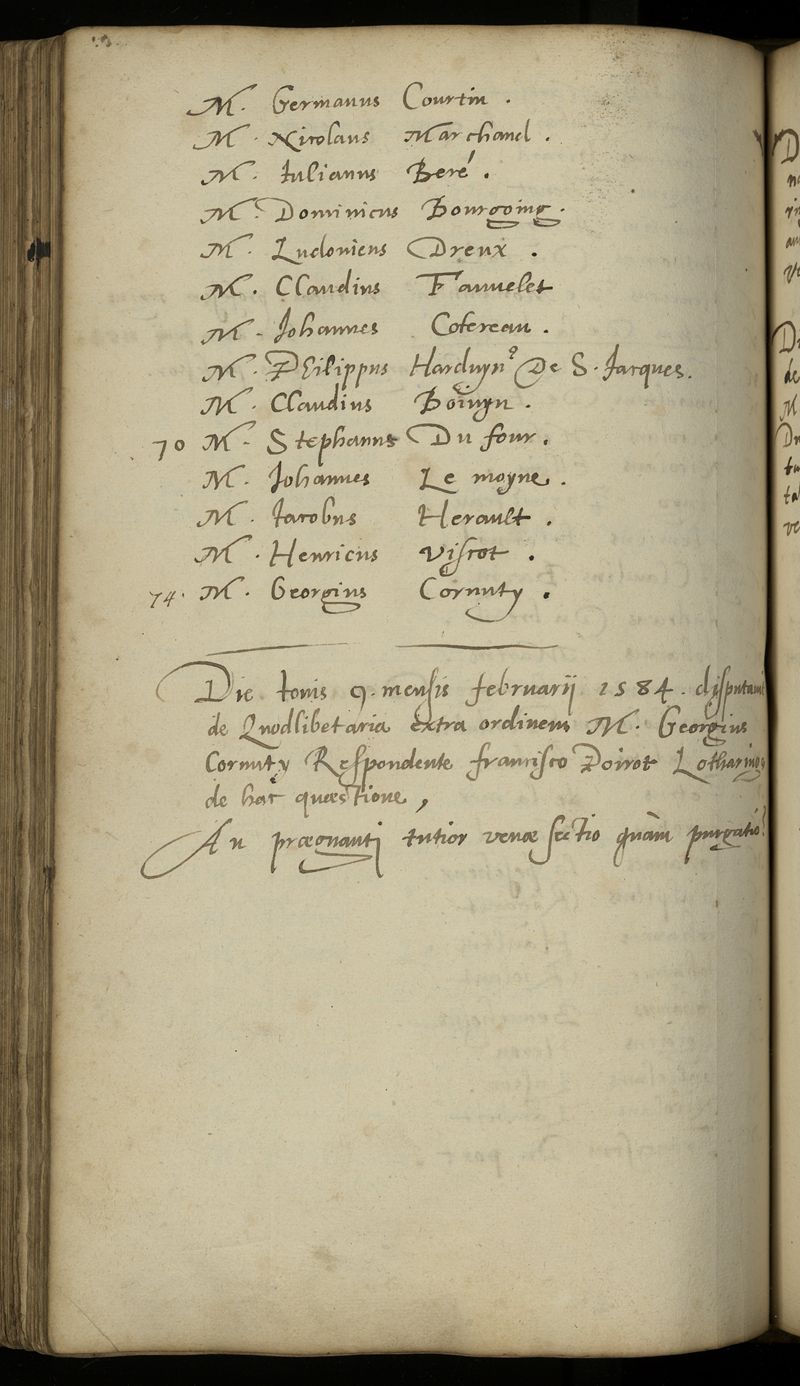 M. Germanus Courtin .
M. Nicolaus Marchand .
M. Iulianus Beré .
M. Dominicus Bourgoing .
M. Ludovicus Dreux .
M. Claudius Fauuelet
M. Johannes Cotereau .
M. Philippus Harduyn? De S. Jacques.
M. Claudius Boiuyn .
70 M. Stephanus Du four .
M. Johannes Le moyne .
M. Iacobus Herault .
M. Henricus Viscot .
74. M. Georgius Cornuty .
Die Iovis 9. mensis februarij 1584. disputavit
de Quodlibetaria extra ordinem M. Georgius
Cornuty Respondente francisco Poirot Lotharingo
de hac quæstione,
An prægnanti tutior venæ sectio quàm purgatio?
D
M
D